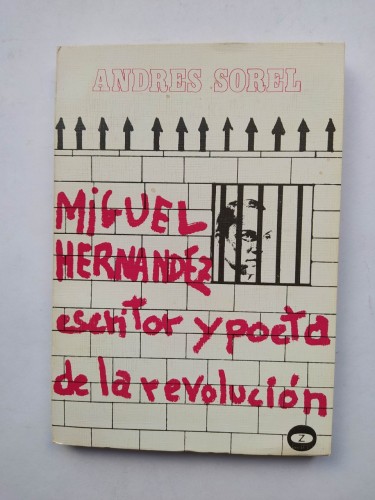 ANDRES SOREL
MiGUEL
HERNANDEZ
escritor y poeta
de la revolución
Z